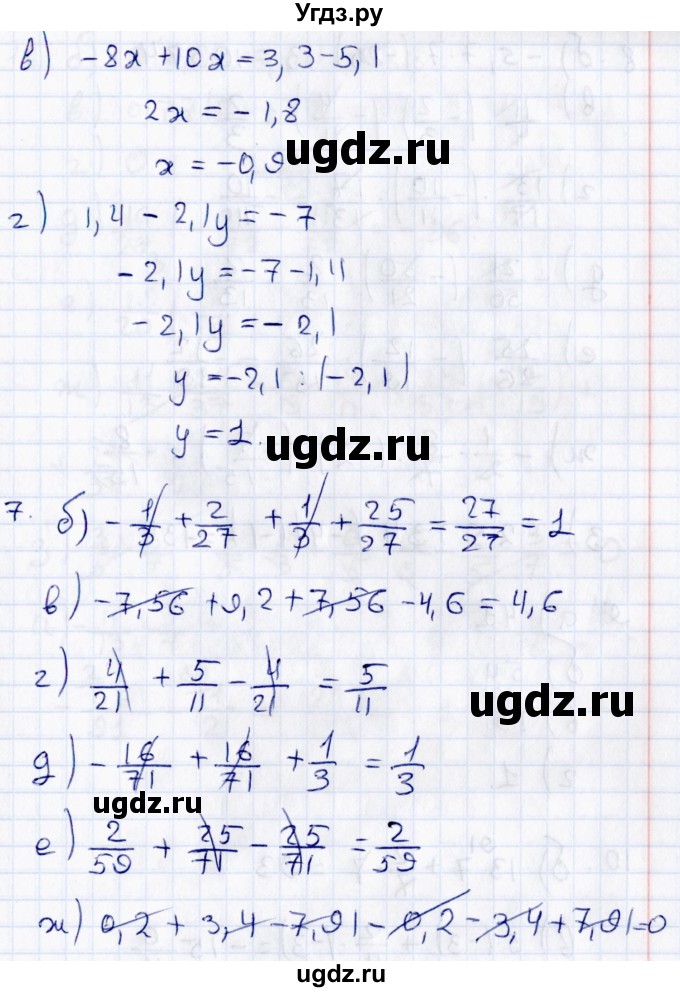 Угдз.ру
в) -8x+10x=3,3-5,1
2x=-1,8
x=-0,9
ugdz.ru
г) 1,4-2,1y=-7
-2,1y=-7-1,4
-2,1y=-2,1
y=-2,1:(-2,1)
y=1.
ugdz.ru
7. б) -1/3+2/27+1/3+25/27=27/27=1
в) -7,56+9,2+7,56-4,6=4,6
г) 4/21+5/11-4/21=5/11
ugdz.ru
д) -16/71+16/71+1/3=1/3
ugdz.ru
е) 2/59+25/71-25/71=2/59
ugdz.ru
ж) 0,2+3,4-7,91-0,2-3,4+7,91=0
ugdz.ru